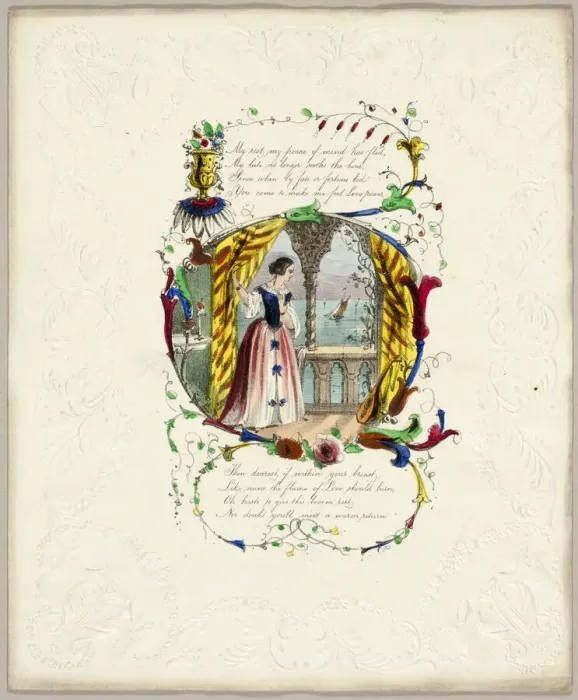 My rest, my peace of mind has fled,
My lute no longer sooths the hour,
Since when by fate or fortune led
You come to make me feel Loves power
Then dearest, if within your breast,
Like mine the flame of Love should burn,
Oh haste to give this bosom rest,
Nor doubt you'll meet a warm return